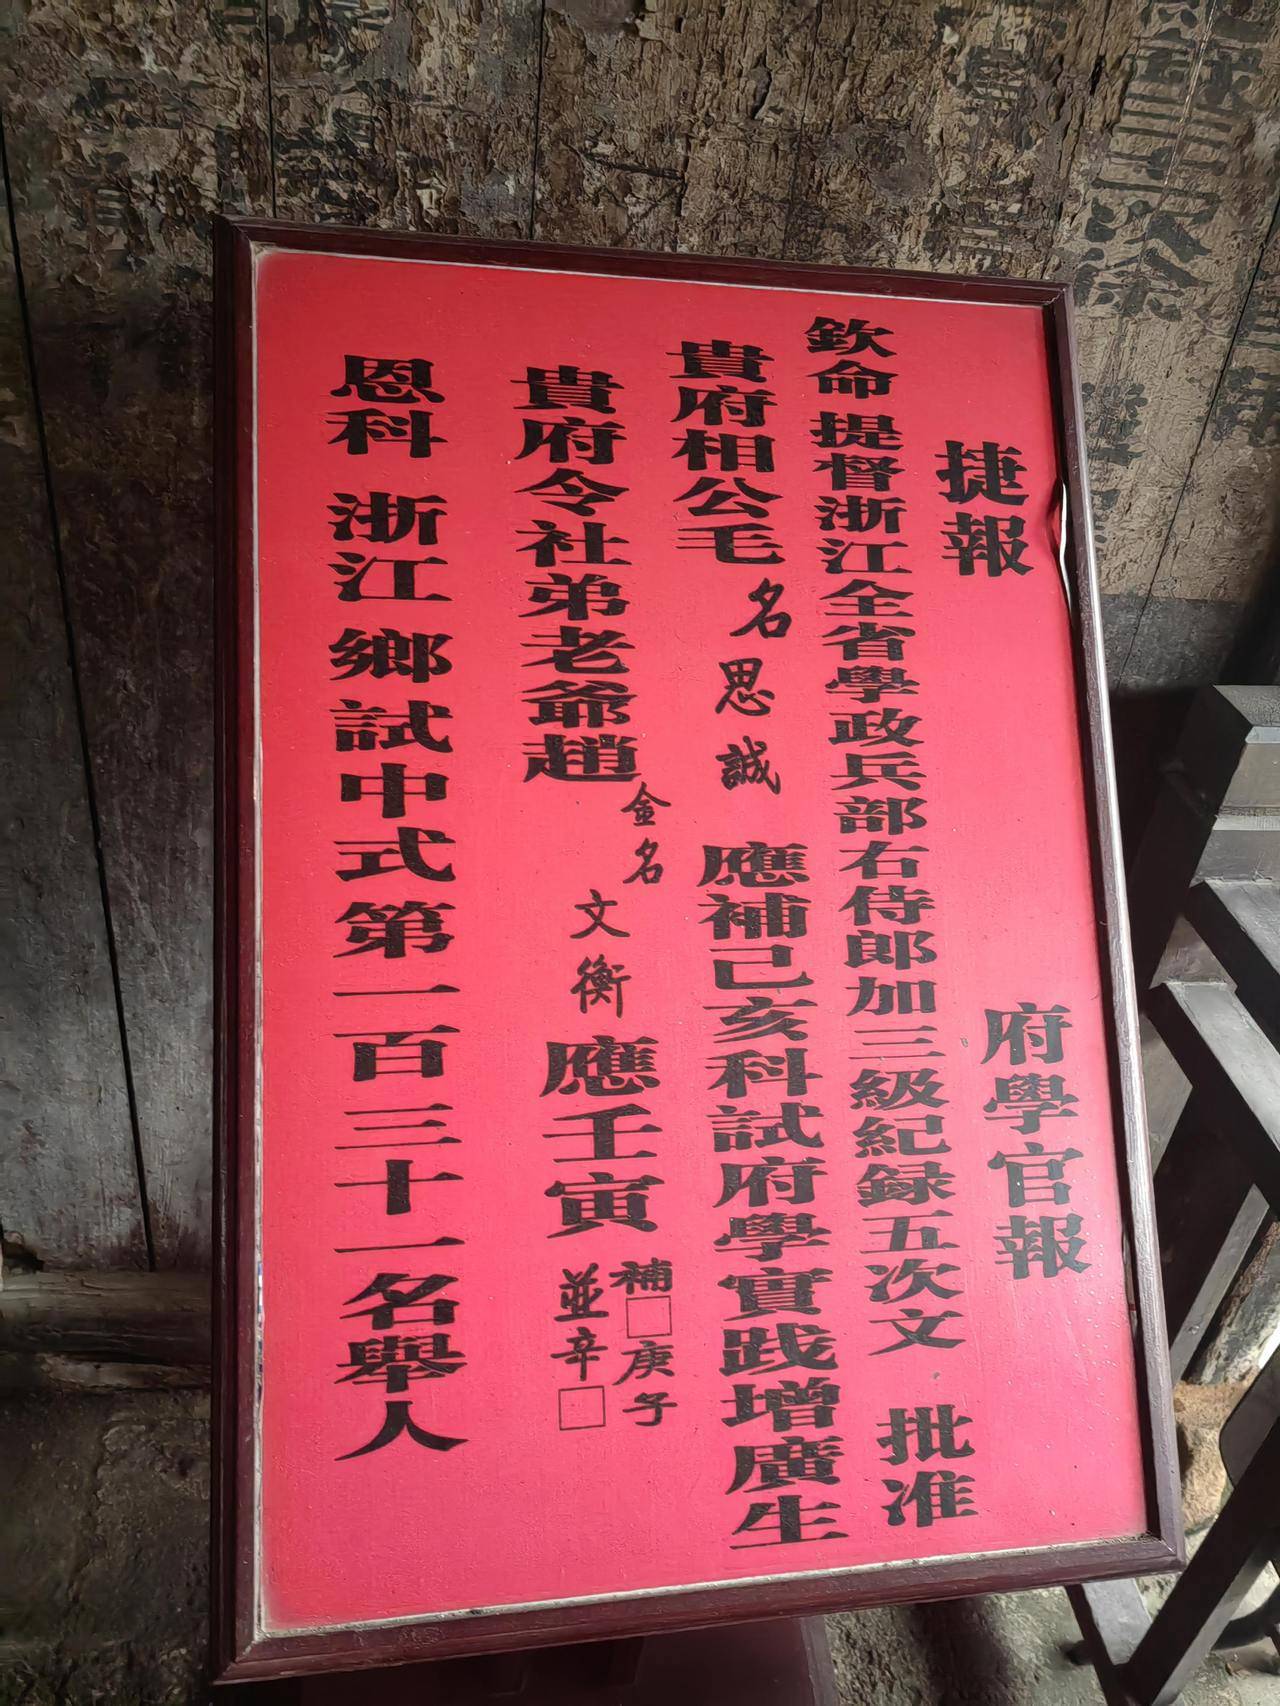 捷報 府學官報
欽命 提督浙江全省學政兵部右侍郎加三級紀録五次文 批准
貴府相公毛 名思誠 應補己亥科試府學實踐增廣生
貴府令社弟老爺趙 金名 文衡 應壬寅 補□庚子 並辛□
恩科 浙江鄉試中式第一百三十一名舉人